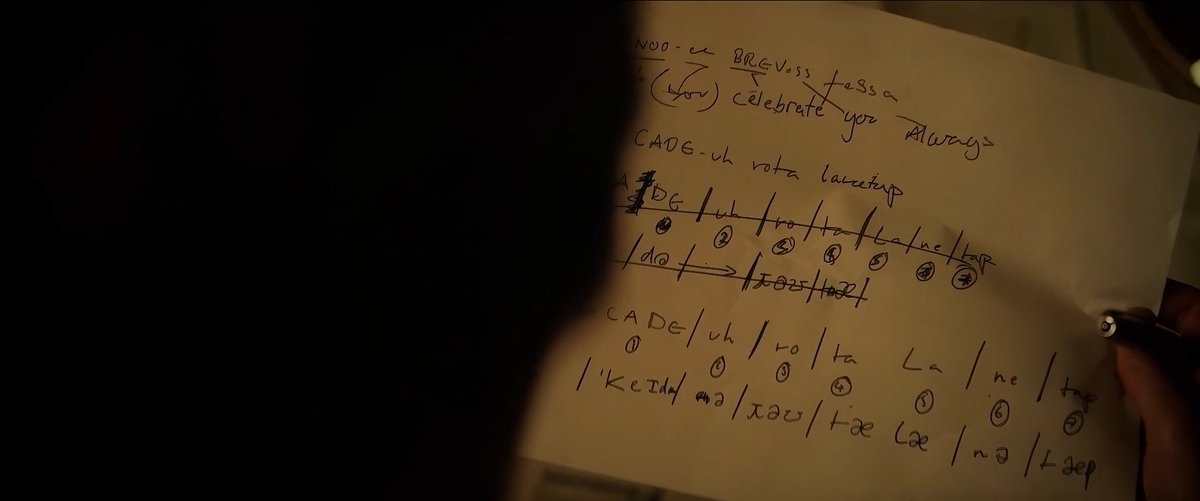 NOO-eh BREVOSS tessa
(you) célebrate you Always
CADE-uh rota lanetap
DE / uh / ro / ta / La / ne / tap
② ⑤ ⑦
/ də / → / ɪəʊ / tæ /
CADE / uh / ro / ta La / ne / tap
① ② ③ ④ ⑤ ⑥ ⑦
/ 'KeIdə / ə / ɪəʊ / tæ Læ / nə / tæp